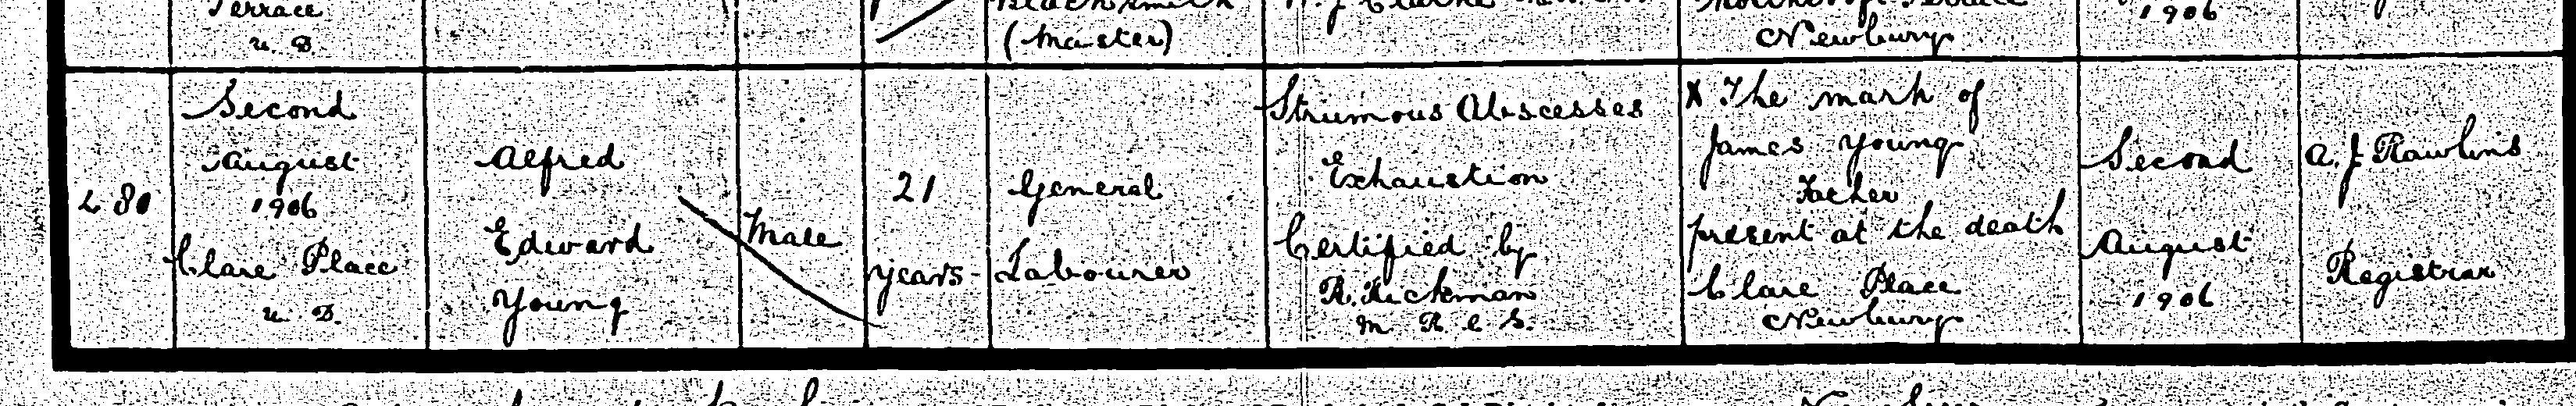 Terrace
U. D.
Blacksmith
(Master)
Newbury
1906
480
Second
August
1906
Clare Place
U. D.
Alfred
Edward
Young
Male
21
years
General
Labourer
Strumous Abscesses
Exhaustion
Certified by
R. Hickman
M R C S.
X The mark of
James Young
Father
present at the death
Clare Place
Newbury
Second
August
1906
A. J. Rawlins
Registrar